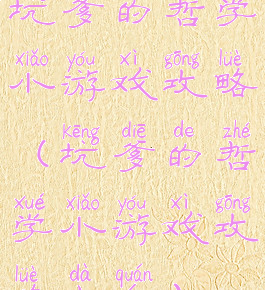 坑爹的哲学
xiǎo yóu xì gōng lüè
小游戏攻略
kēng diē de zhé
(坑爹的哲
xué xiǎo yóu xì gōng
学小游戏攻
lüè dà quán